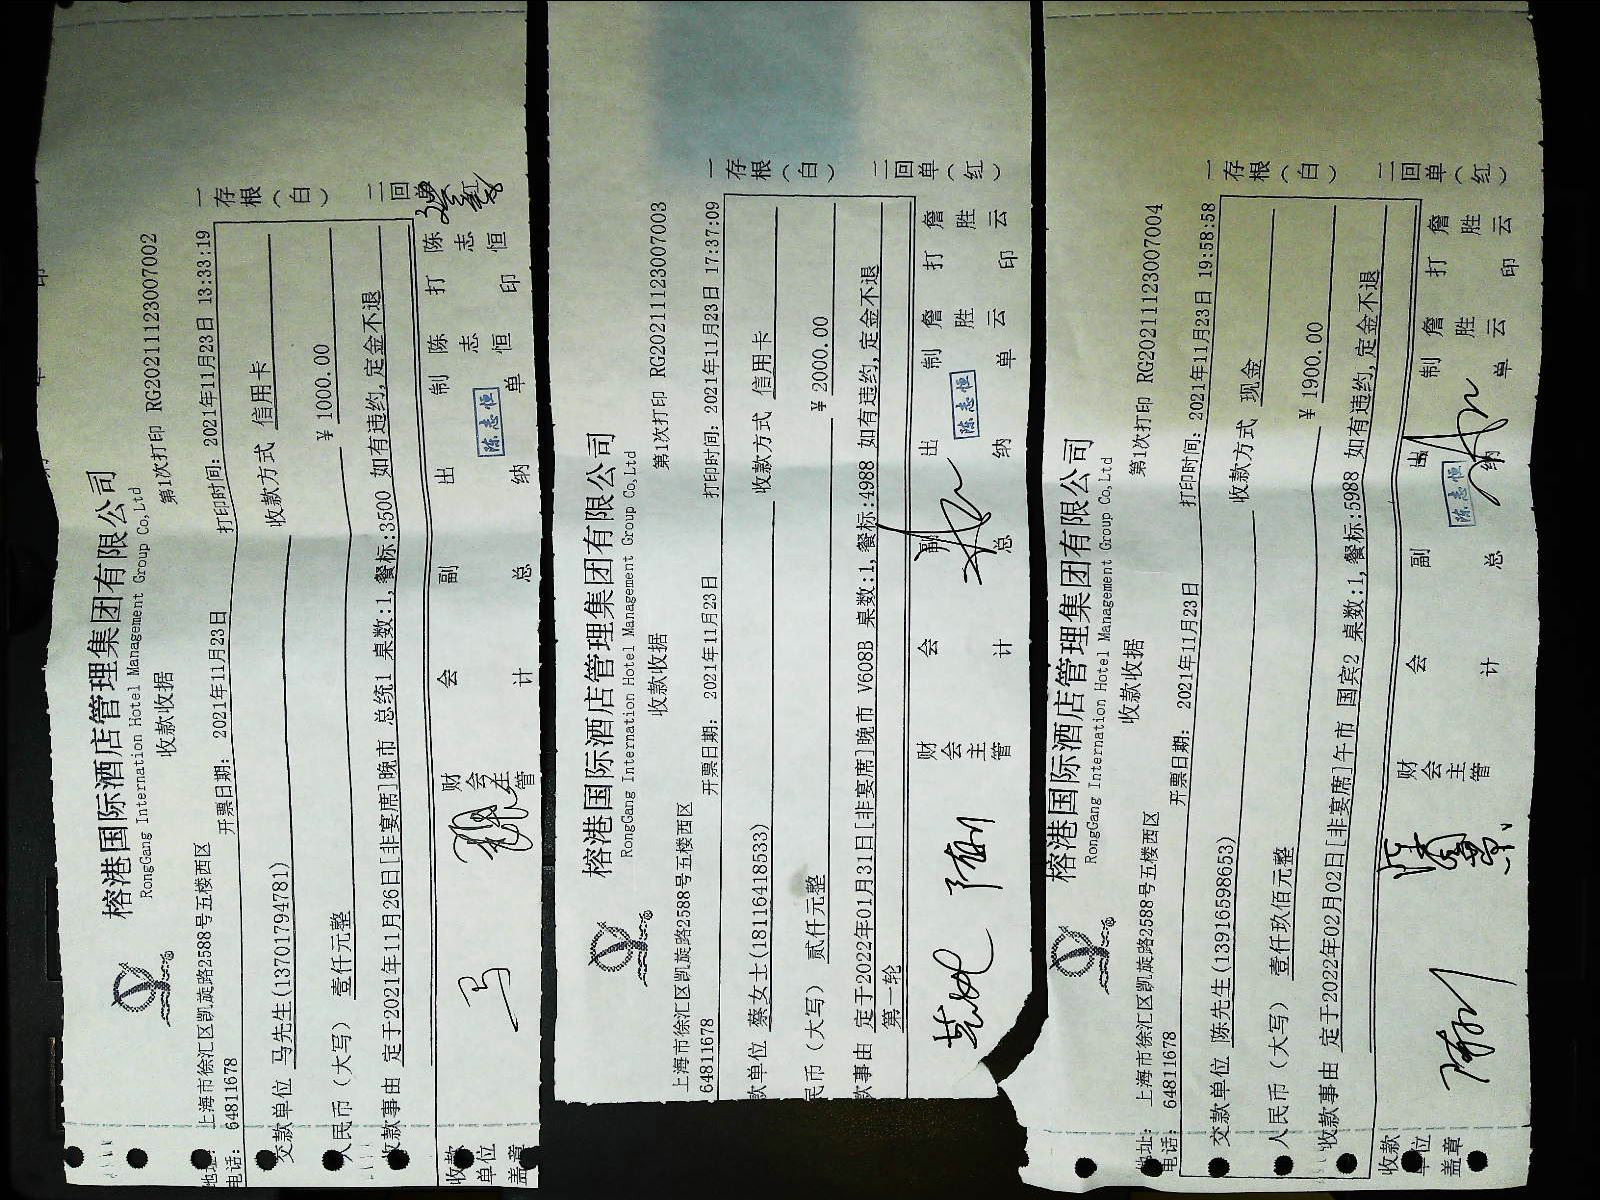 榕港国际酒店管理集团有限公司
RongGang International Hotel Management Group Co,Ltd
收款收据
第1次打印 RG20211123007002
地址: 上海市徐汇区凯旋路2588号五楼西区
电话: 64811678
开票日期: 2021年11月23日
打印时间: 2021年11月23日 13:33:19
交款单位 马先生(13701794781)
收款方式 信用卡
人民币(大写) 壹仟元整
¥ 1000.00
收款事由 定于2021年11月26日[非宴席]晚市 总统1 桌数:1,餐标:3500 如有违约,定金不退
一存根(白)
二回单
收款单位盖章
马
财会主管
会计
副总
出纳
陈志恒
制单
陈志恒
打印
陈志恒
榕港国际酒店管理集团有限公司
RongGang International Hotel Management Group Co,Ltd
收款收据
第1次打印 RG20211123007003
上海市徐汇区凯旋路2588号五楼西区
64811678
开票日期: 2021年11月23日
打印时间: 2021年11月23日 17:37:09
款单位 蔡女士(18116418533)
收款方式 信用卡
民币(大写) 贰仟元整
¥ 2000.00
款事由 定于2022年01月31日[非宴席]晚市 V608B 桌数:1,餐标:4988 如有违约,定金不退
第一轮
一存根(白)
二回单(红)
财会主管
会计
副总
出纳
陈志恒
制单
詹胜云
打印
詹胜云
榕港国际酒店管理集团有限公司
RongGang International Hotel Management Group Co,Ltd
收款收据
第1次打印 RG20211123007004
地址: 上海市徐汇区凯旋路2588号五楼西区
电话: 64811678
开票日期: 2021年11月23日
打印时间: 2021年11月23日 19:58:58
交款单位 陈先生(13916598653)
收款方式 现金
人民币(大写) 壹仟玖佰元整
¥ 1900.00
收款事由 定于2022年02月02日[非宴席]午市 国宾2 桌数:1,餐标:5988 如有违约,定金不退
一存根(白)
二回单(红)
收款单位盖章
财会主管
会计
副总
出纳
陈志恒
制单
詹胜云
打印
詹胜云